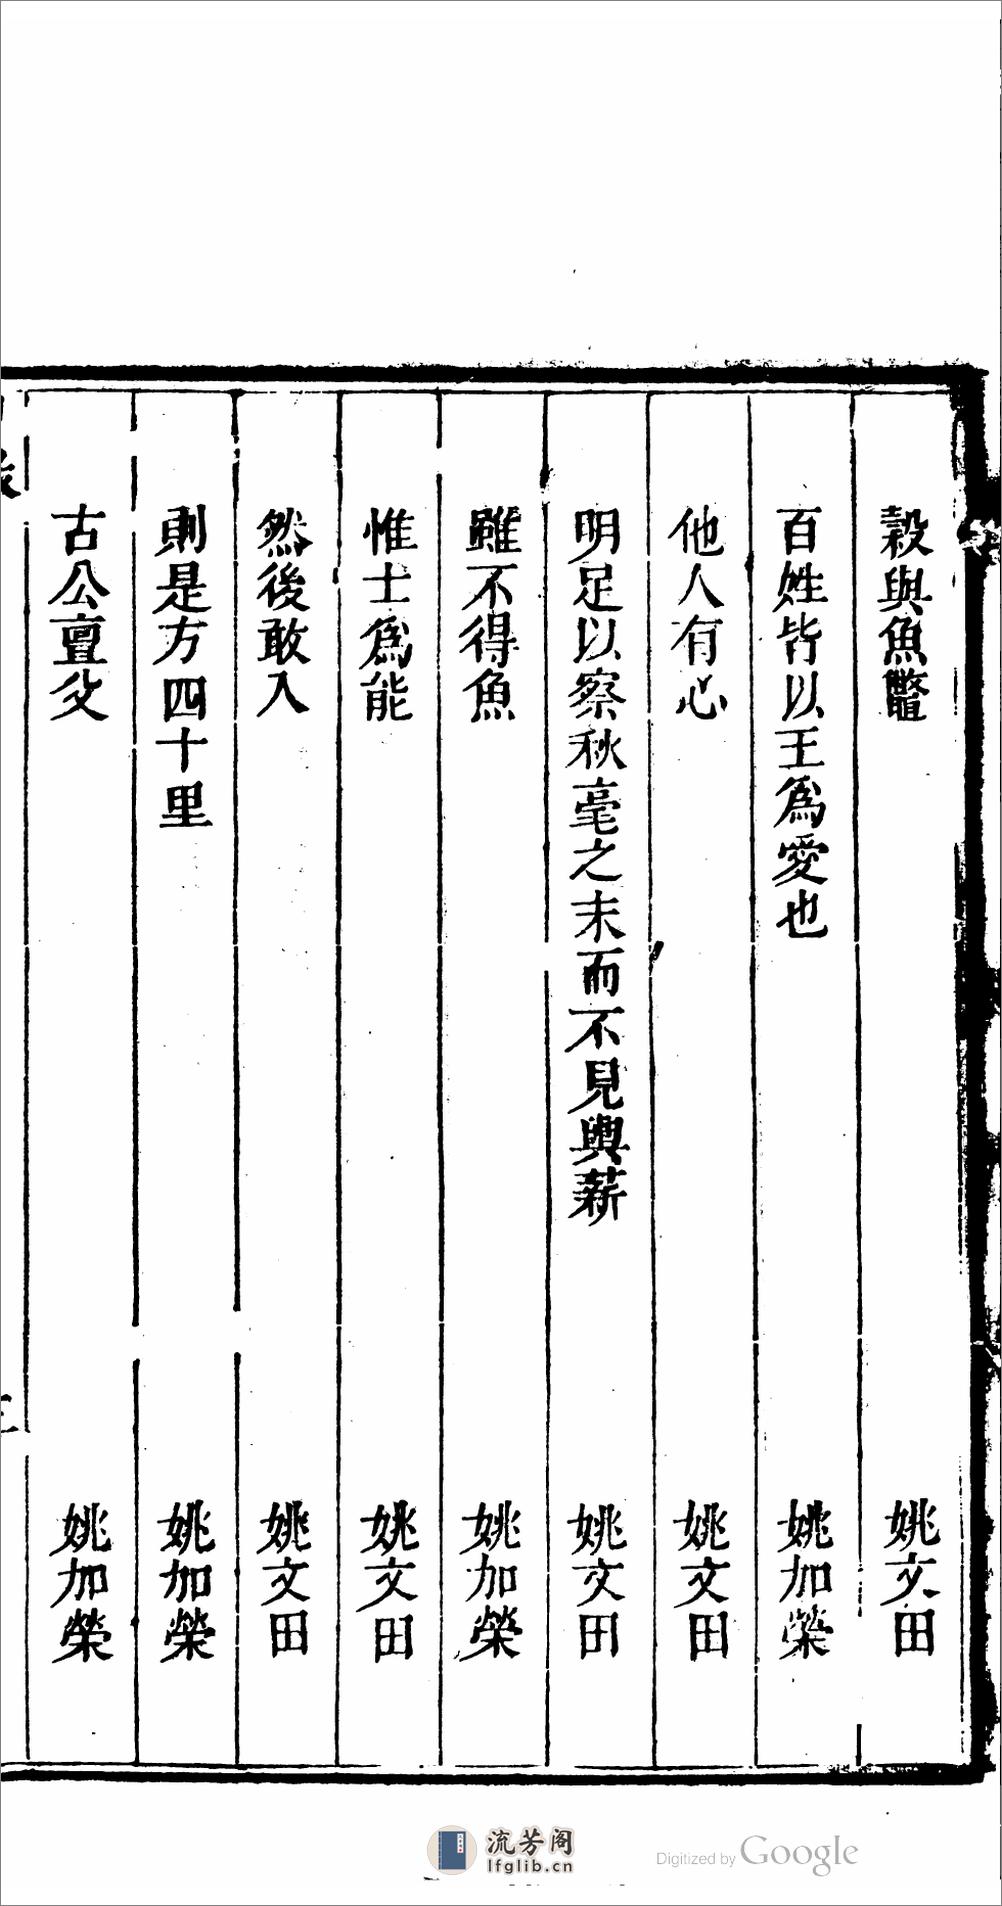 穀與魚鼈 姚文田
百姓皆以王爲愛也 姚加榮
他人有心 姚文田
明足以察秋毫之末而不見輿薪 姚文田
雖不得魚 姚加榮
惟士爲能 姚文田
然後敢入 姚文田
則是方四十里 姚加榮
古公亶父 姚加榮
流芳阁
lfglib.cn
Digitized by Google